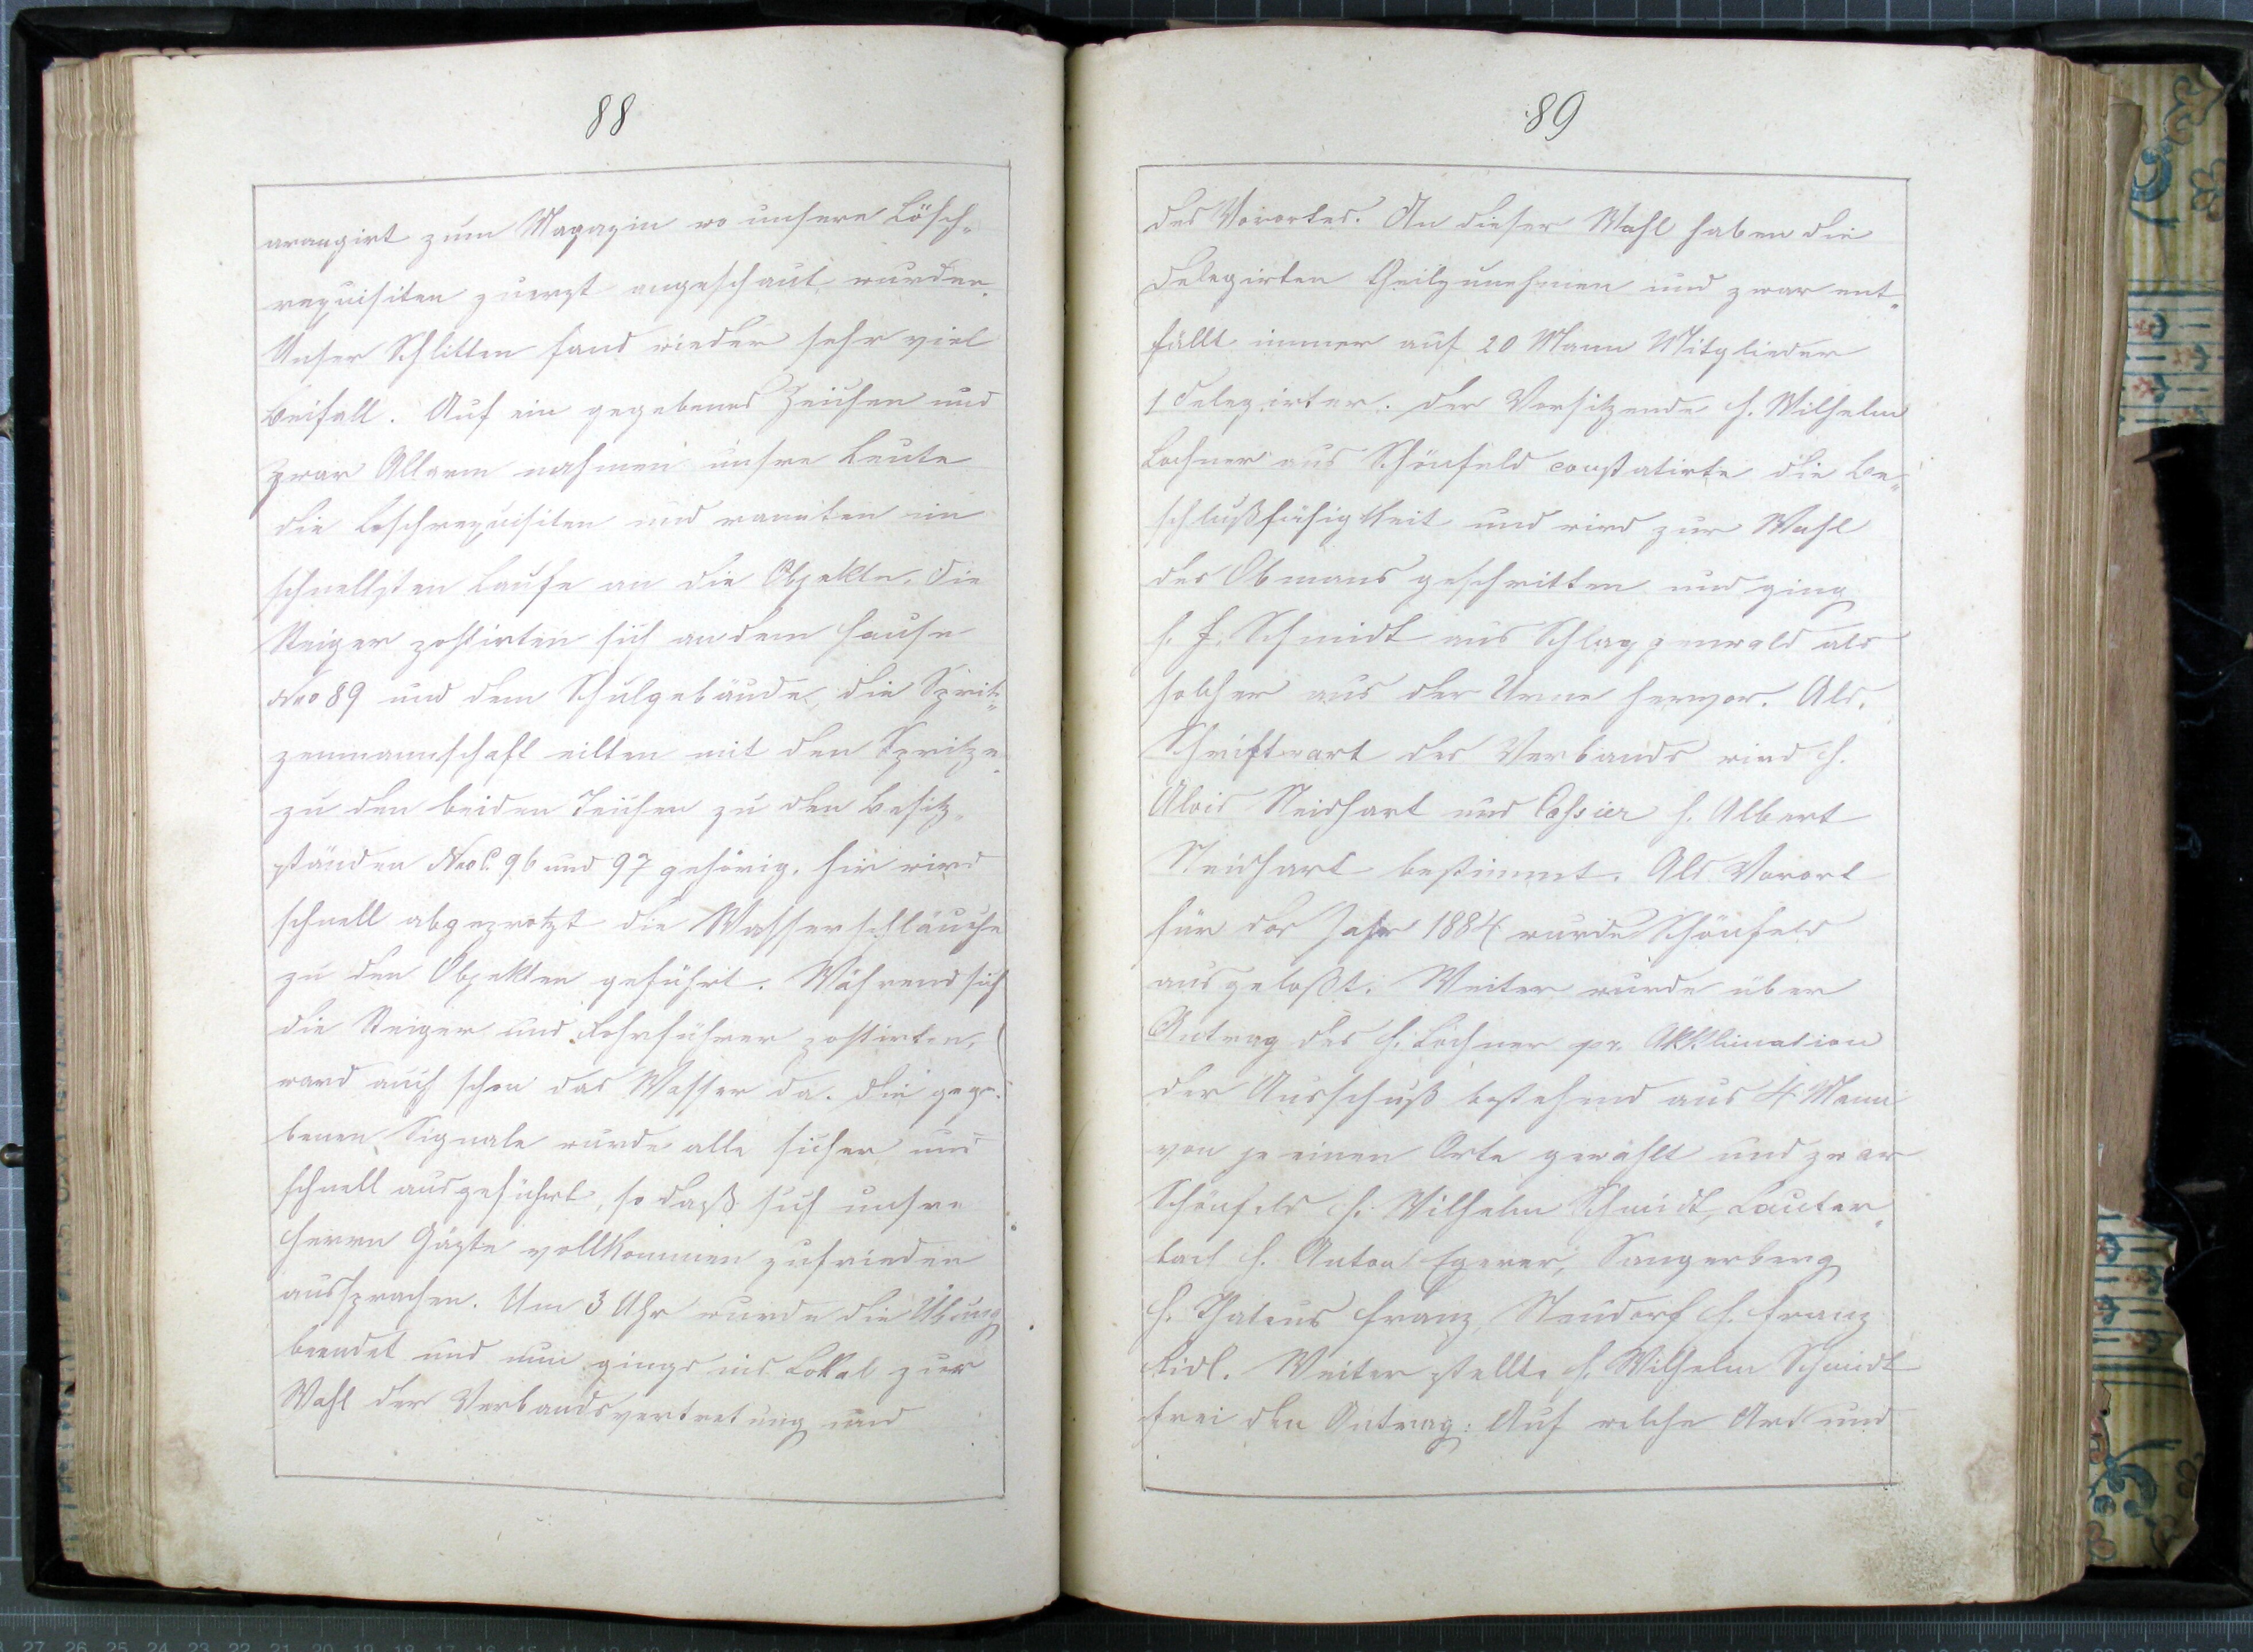 88
arangirt zum Magazin wo unsere Lösch„
requisiten zuerst angeschaut wurden.
Unser Schlitten fand wieder sehr viel
Beifall. Auf ein gegebenes Zeichen und
zwar Allarm nahmen unsre Leute
die Leschrequisiten und rannten im
schnellsten Laufe an die Objekte. Die
Steiger postirten sich an dem Hause
Nro 89 und dem Schulgebäude, die Sprit„
zenmannschaft eilten mit den Spritzen
zu den beiden Teichen zu den Besitz„
ständen NroC. 96 und 97 gehörig. Hir wird
schnell abgeprotzt die Wasserschläuche
zu den Objekten geführt. Während sich
die Steiger und Rohrführer postirten,
ward auch schon das Wasser da. Die gege„
benen Signale wurde alle sicher und
schnell ausgeführt, so dasß sich unsre
Herrn Gäste vollkommen zufrieden
aussprachen. Um 3 Uhr wurde die Übung
beendet und nun gings ins Lokal zur
Wahl der Verbandsvertretung und
89
des Vorortes. An dieser Wahl haben die
Delegirten theilzunehmen und zwar ent„
fällt immer auf 20 Mann Mitglieder
1 Delegirter. Der Vorsitzende H. Wilhelm
Lochner aus Schönfeld constatirte die Be„
schlußfähigkeit und wird zur Wahl
des Obmans geschritten und ging
H. F. Schmidt aus Schlaggenwald als
solcher aus der Urne hervor. Als
Schriftwart des Verbands wird H.
Alois Neidhart und Cassier H. Albert
Neidhart bestimmt. Als Vorort
für das Jahr 1884 wurde Schönfeld
ausgeloßt. Weiter wurde über
Antrag des H. Lochner pr. Akklimation
der Ausschuß bestehend aus 4 Mann
von je einen Orte gewählt und zwar
Schönfeld H. Wilhelm Schmidt, Lauter„
bach H. Anton Egerer, Sangerberg
H. Thateus Franz, Neudorf H. Franz
Ridl. Weiter stellte H. Wilhelm Schmidt
frei den Antrag: Auf welche Art und